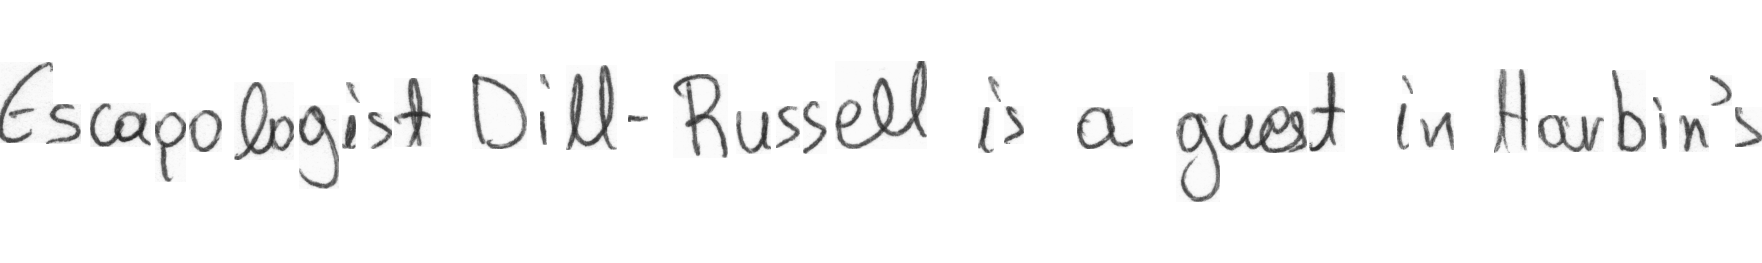 Escapologist Dill-Russell is a guest in Harbin's